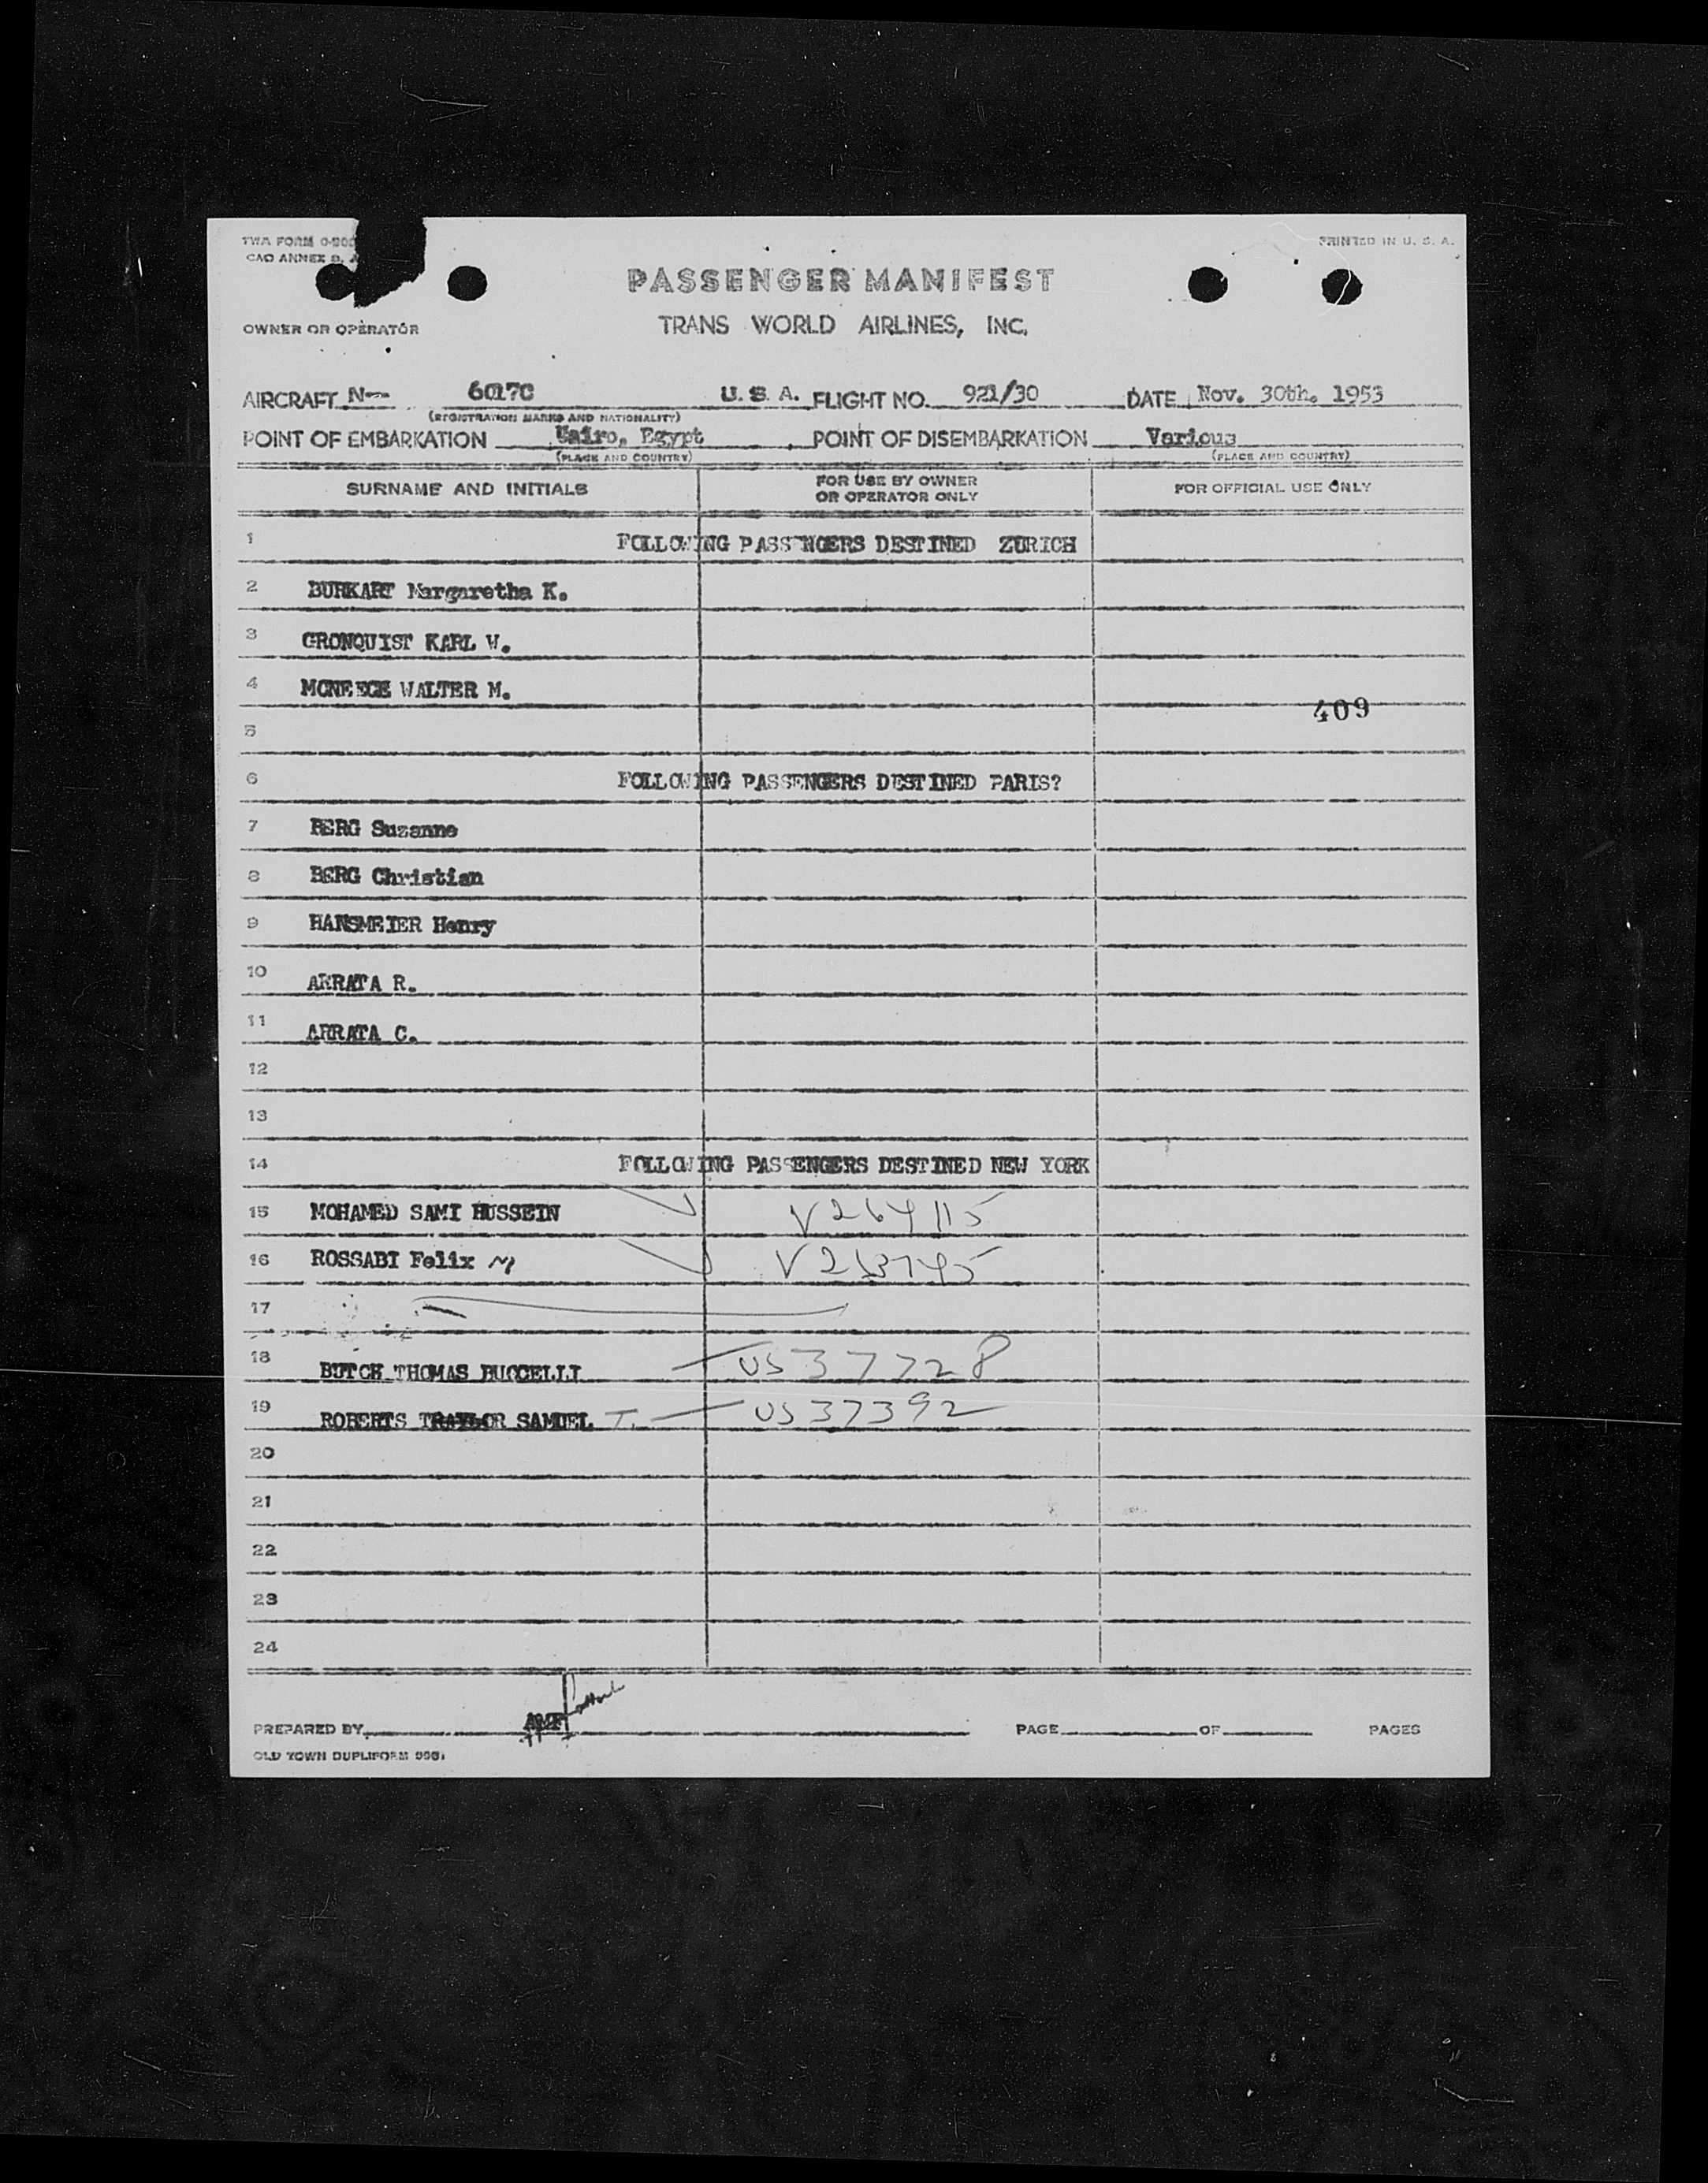 TWA FORM 0-900
PRINTED IN U. S. A.
CAO ANNEX 9, A
PASSENGER MANIFEST
OWNER OR OPERATOR
TRANS WORLD AIRLINES, INC.
AIRCRAFT N-- 6017C U. S. A. FLIGHT NO. 921/30 DATE Nov. 30th. 1953
(REGISTRATION MARKS AND NATIONALITY)
POINT OF EMBARKATION Cairo, Egypt POINT OF DISEMBARKATION Various
(PLACE AND COUNTRY) (PLACE AND COUNTRY)
SURNAME AND INITIALS FOR USE BY OWNER OR OPERATOR ONLY FOR OFFICIAL USE ONLY
1 FOLLOWING PASSENGERS DESTINED ZURICH
2 BURKART Margaretha K.
3 GRONQUIST KARL W.
4 WALTER M.
409
5
6 FOLLOWING PASSENGERS DESTINED PARIS?
7 BERG Suzanne
8 BERG Christian
9 HANSMEIER Henry
10 ARRATA R.
11 ARRATA C.
12
13
14 FOLLOWING PASSENGERS DESTINED NEW YORK
15 MOHAMED SAMI HUSSEIN V264115
16 ROSSABI Felix V263745
17
18 BUTCH THOMAS BUCCELLI US 37728
19 ROBERTS TRAYLOR SAMUEL T. US 37392
20
21
22
23
24
PREPARED BY PAGE OF PAGES
OLD TOWN DUPLIFORM